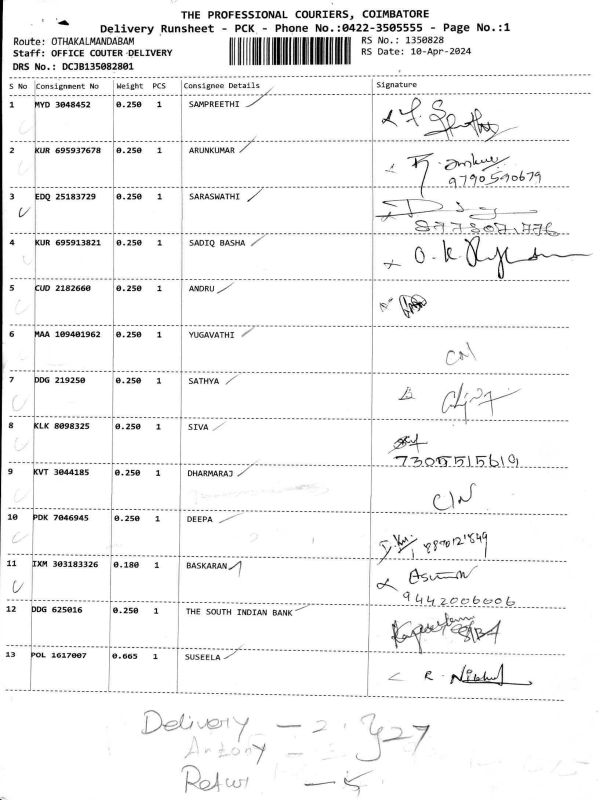 THE PROFESSIONAL COURIERS, COIMBATORE
Delivery Runsheet - PCK - Phone No.:0422-3505555 - Page No.:1
Route: OTHAKALMANDABAM RS No.: 1350828
Staff: OFFICE COUTER DELIVERY RS Date: 10-Apr-2024
DRS No.: DCJB135082801
S No Consignment No Weight PCS Consignee Details Signature
1 MYD 3048452 0.250 1 SAMPREETHI
2 KUR 695937678 0.250 1 ARUNKUMAR
9790590679
3 EDQ 25183729 0.250 1 SARASWATHI
4 KUR 695913821 0.250 1 SADIQ BASHA
5 CUD 2182660 0.250 1 ANDRU
6 MAA 109401962 0.250 1 YUGAVATHI
7 DDG 219250 0.250 1 SATHYA
8 KLK 8098325 0.250 1 SIVA
7305515619
9 KVT 3044185 0.250 1 DHARMARAJ
10 PDK 7046945 0.250 1 DEEPA
11 IXM 303183326 0.180 1 BASKARAN
9442006006
12 DDG 625016 0.250 1 THE SOUTH INDIAN BANK
13 POL 1617007 0.665 1 SUSEELA R.
Delivery - 2
27
Antony
- 5